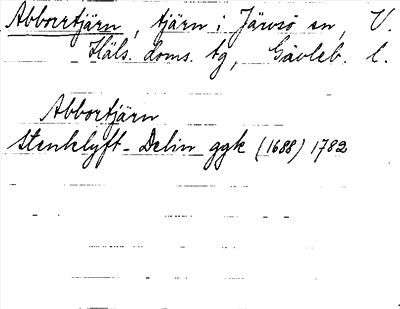 Abborrtjärn, tjärn i Järvsö sn, V.
Häls. doms. tg, Gävleb. l.
Abbortjärn
Stenklyft-Delin ggk (1688) 1782